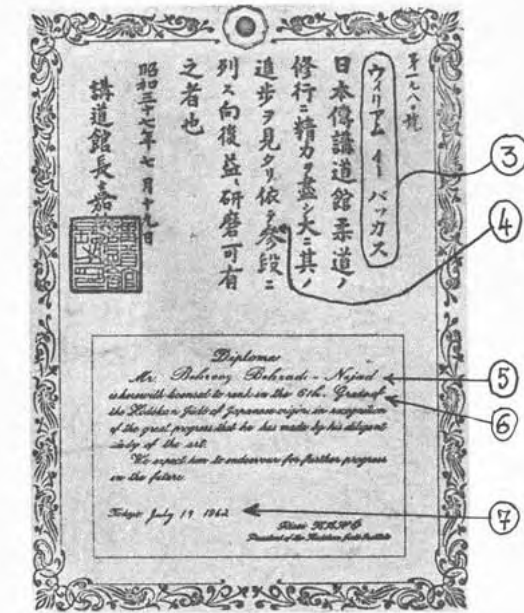 第一九八〇號
ウィリアム イー バッカス
日本傳講道館柔道ノ
修行ニ精力ヲ盡シ大ニ其ノ
進歩ヲ見タリ依テ參段ニ
列ス向後益々研磨可有
之者也
昭和三十七年七月十九日
講道館長嘉
③
④
Diploma
Mr. Behrooz Behradi-Nejad
is herewith licensed to rank in the 6th. Grade of
the Kodokan Judo of Japanese origin in recognition
of the great progress that he has made by his diligent
study of the art.
We expect him to endeavour for further progress
in the future.
Tokyo July 19 1962
Risei KANO
President of the Kodokan Judo Institute
⑤
⑥
⑦